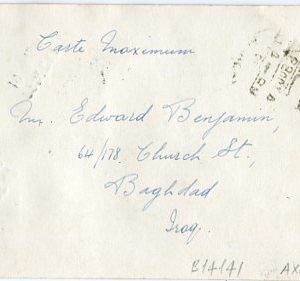 Carte Maximum
Mr. Edward Benjamin,
64/178, Church St.,
Baghdad
Iraq.
B14141
AX